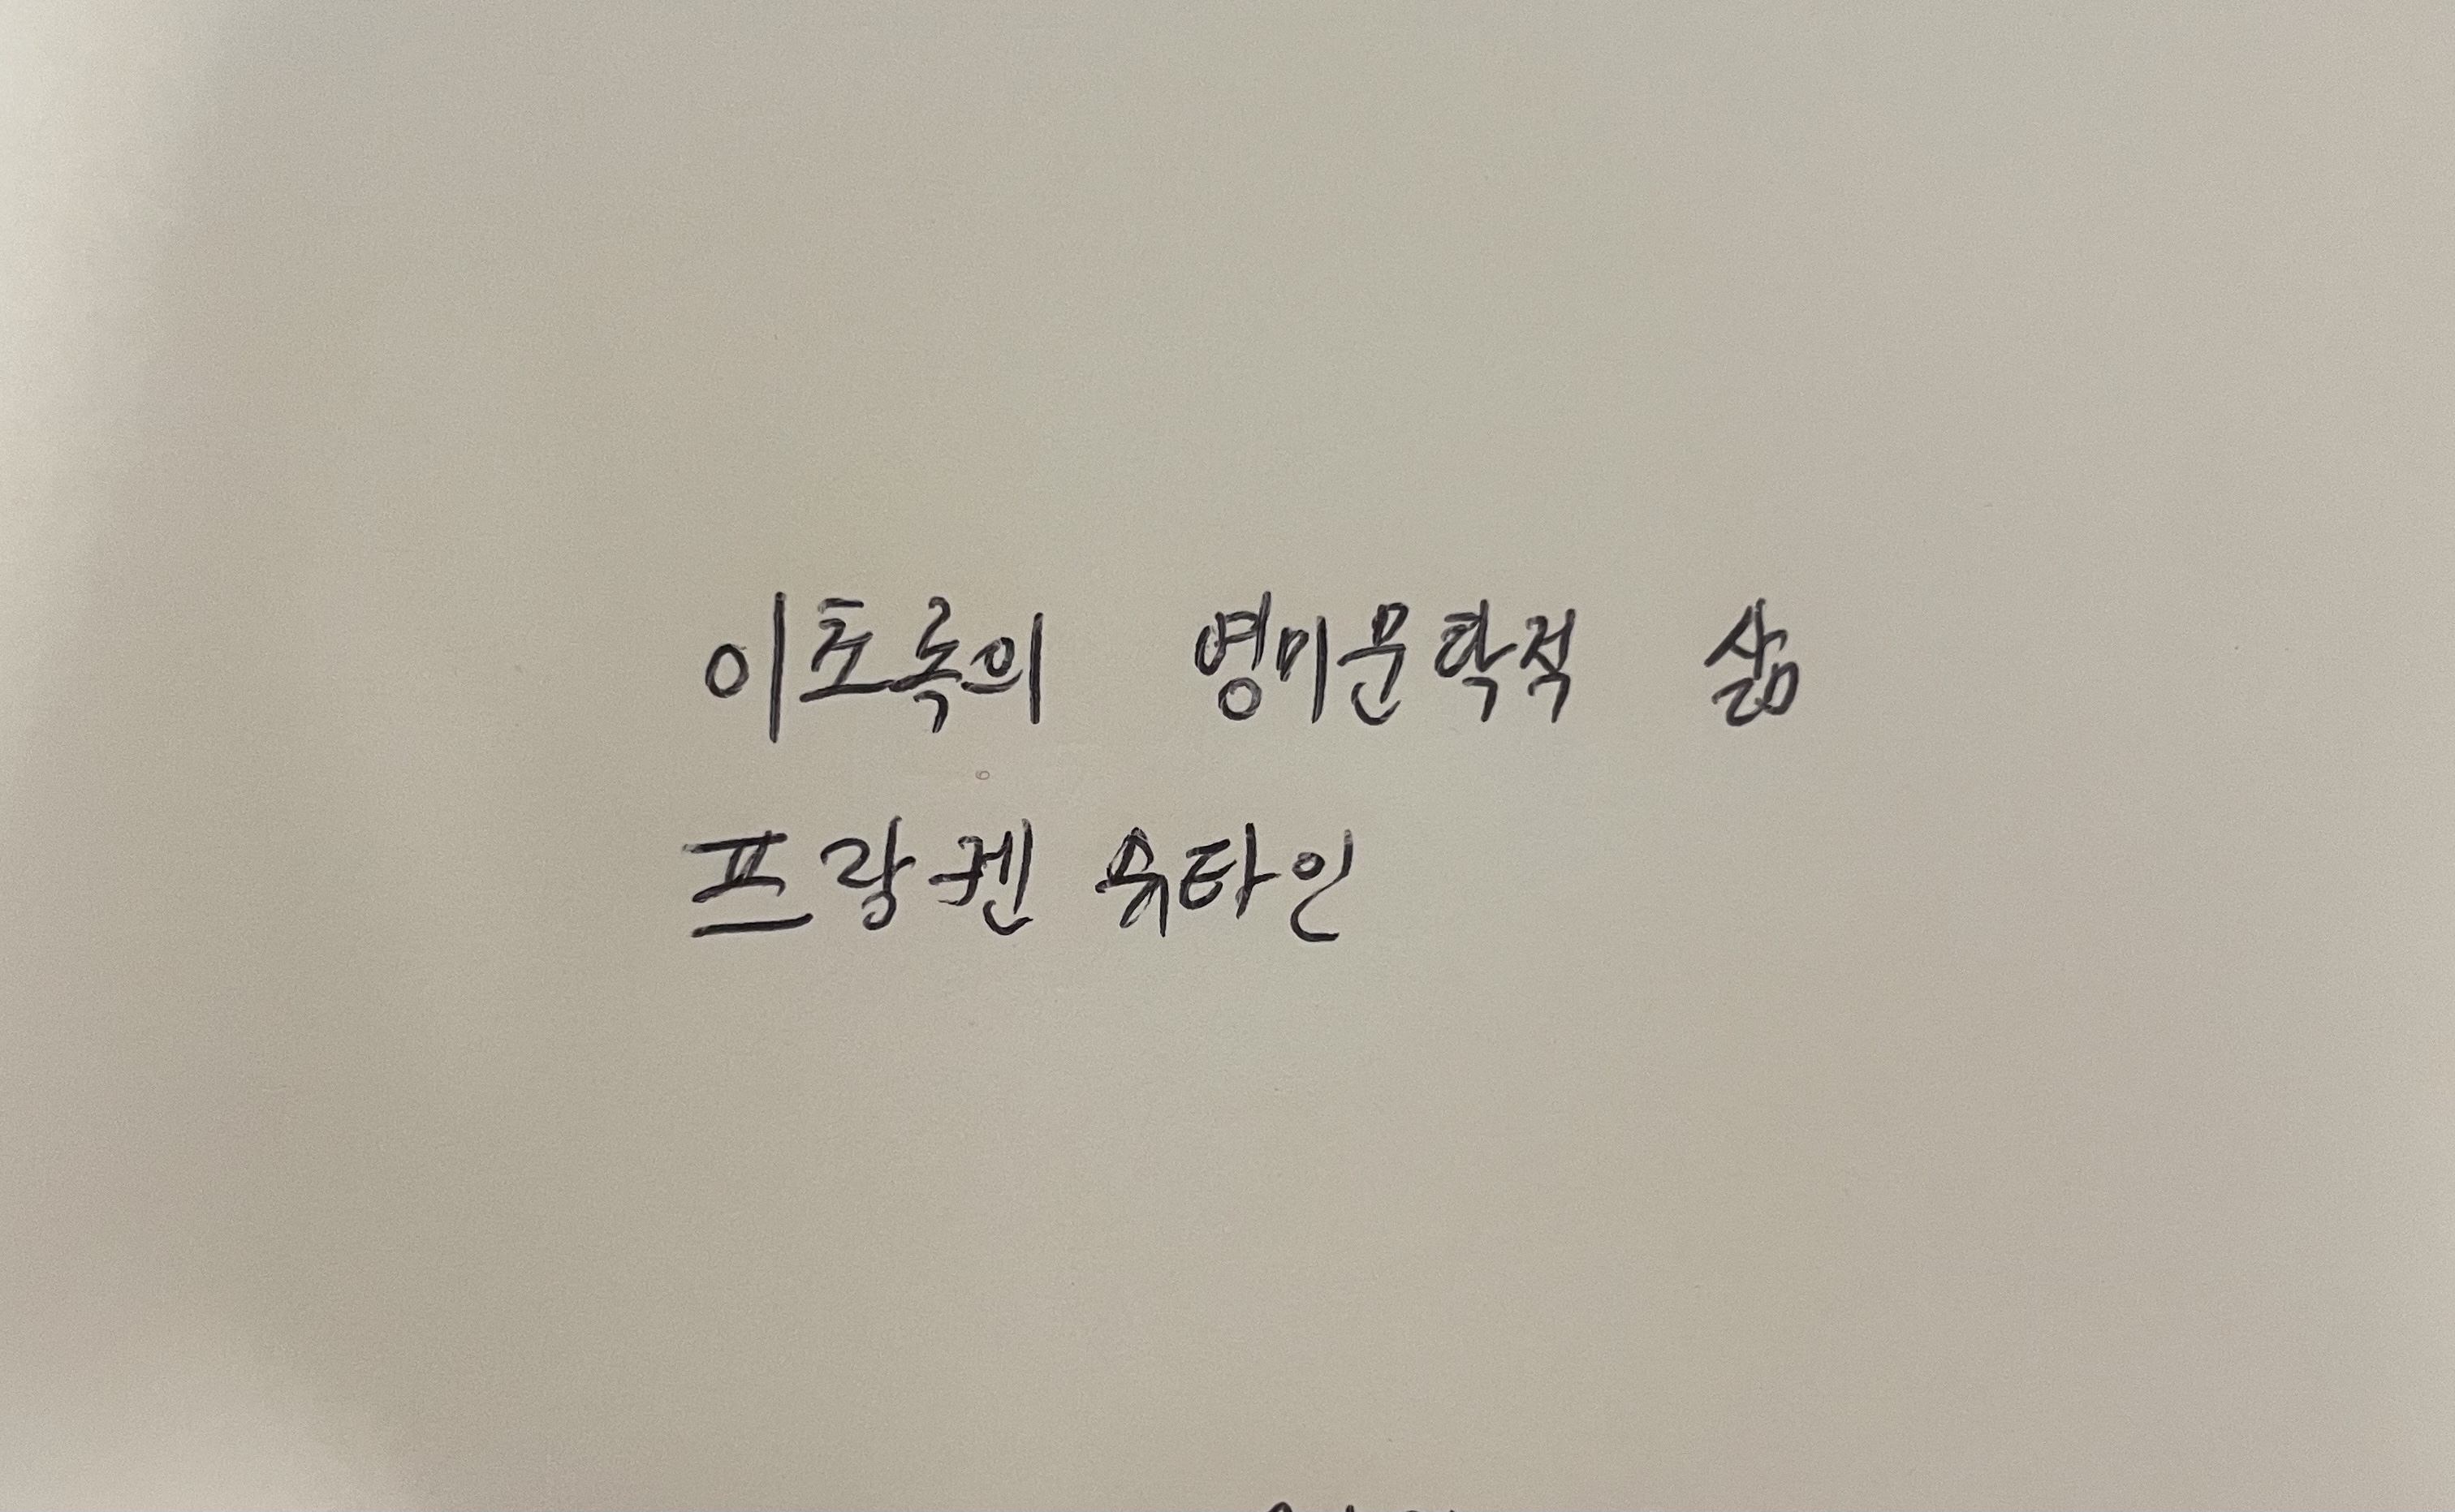 이초록의 영미문학적 삶
프랑켄슈타인